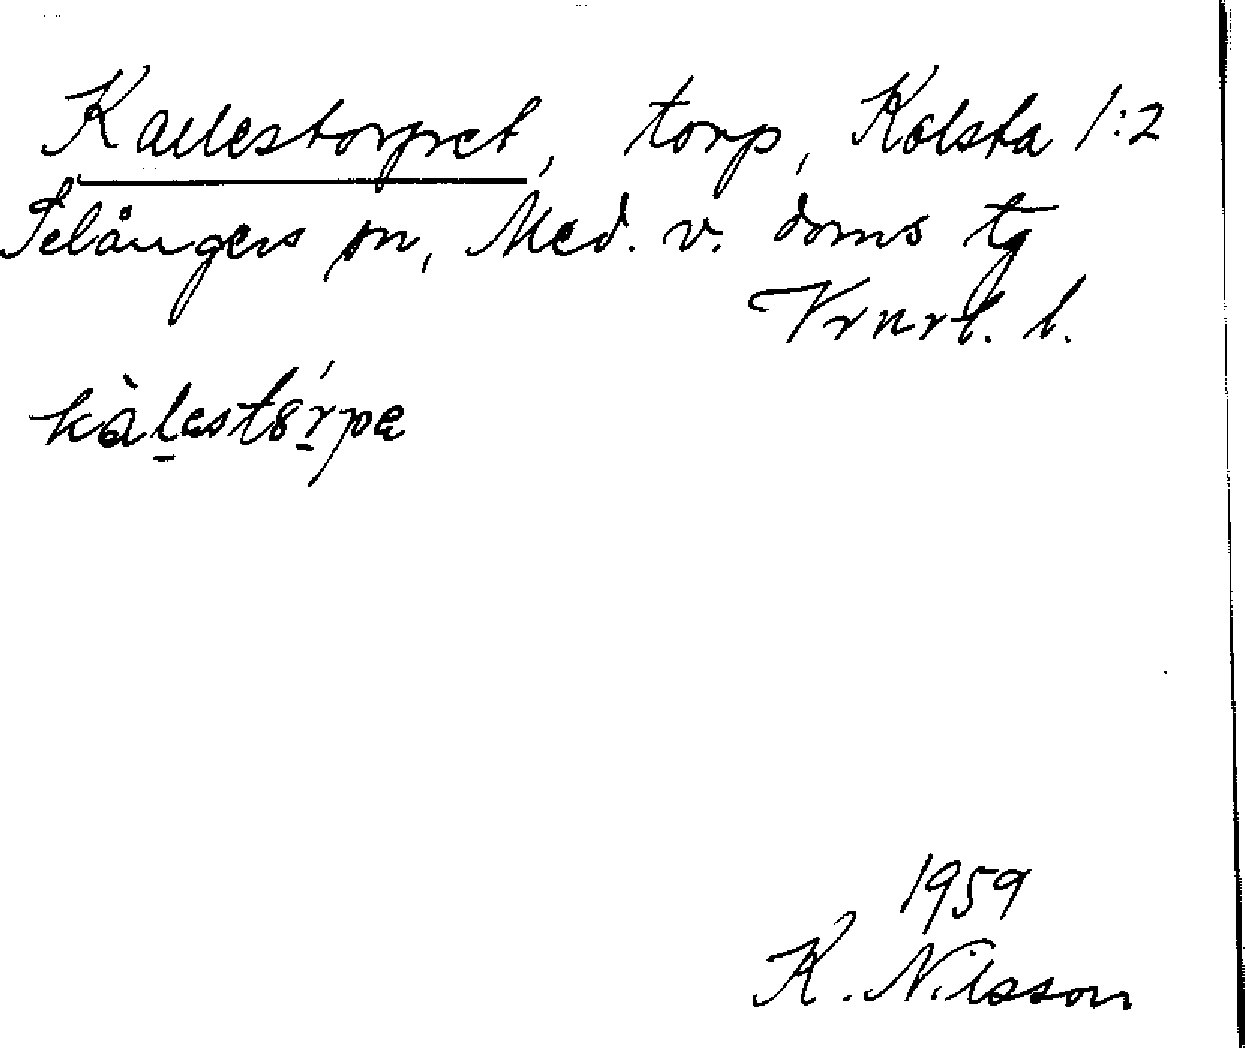 Kallestorpet, torp, Kolsta 1:2
Selångers sn, Med. v. doms tg
Vrnrl. l.
kàlestórpe
1959
K. Nilsson